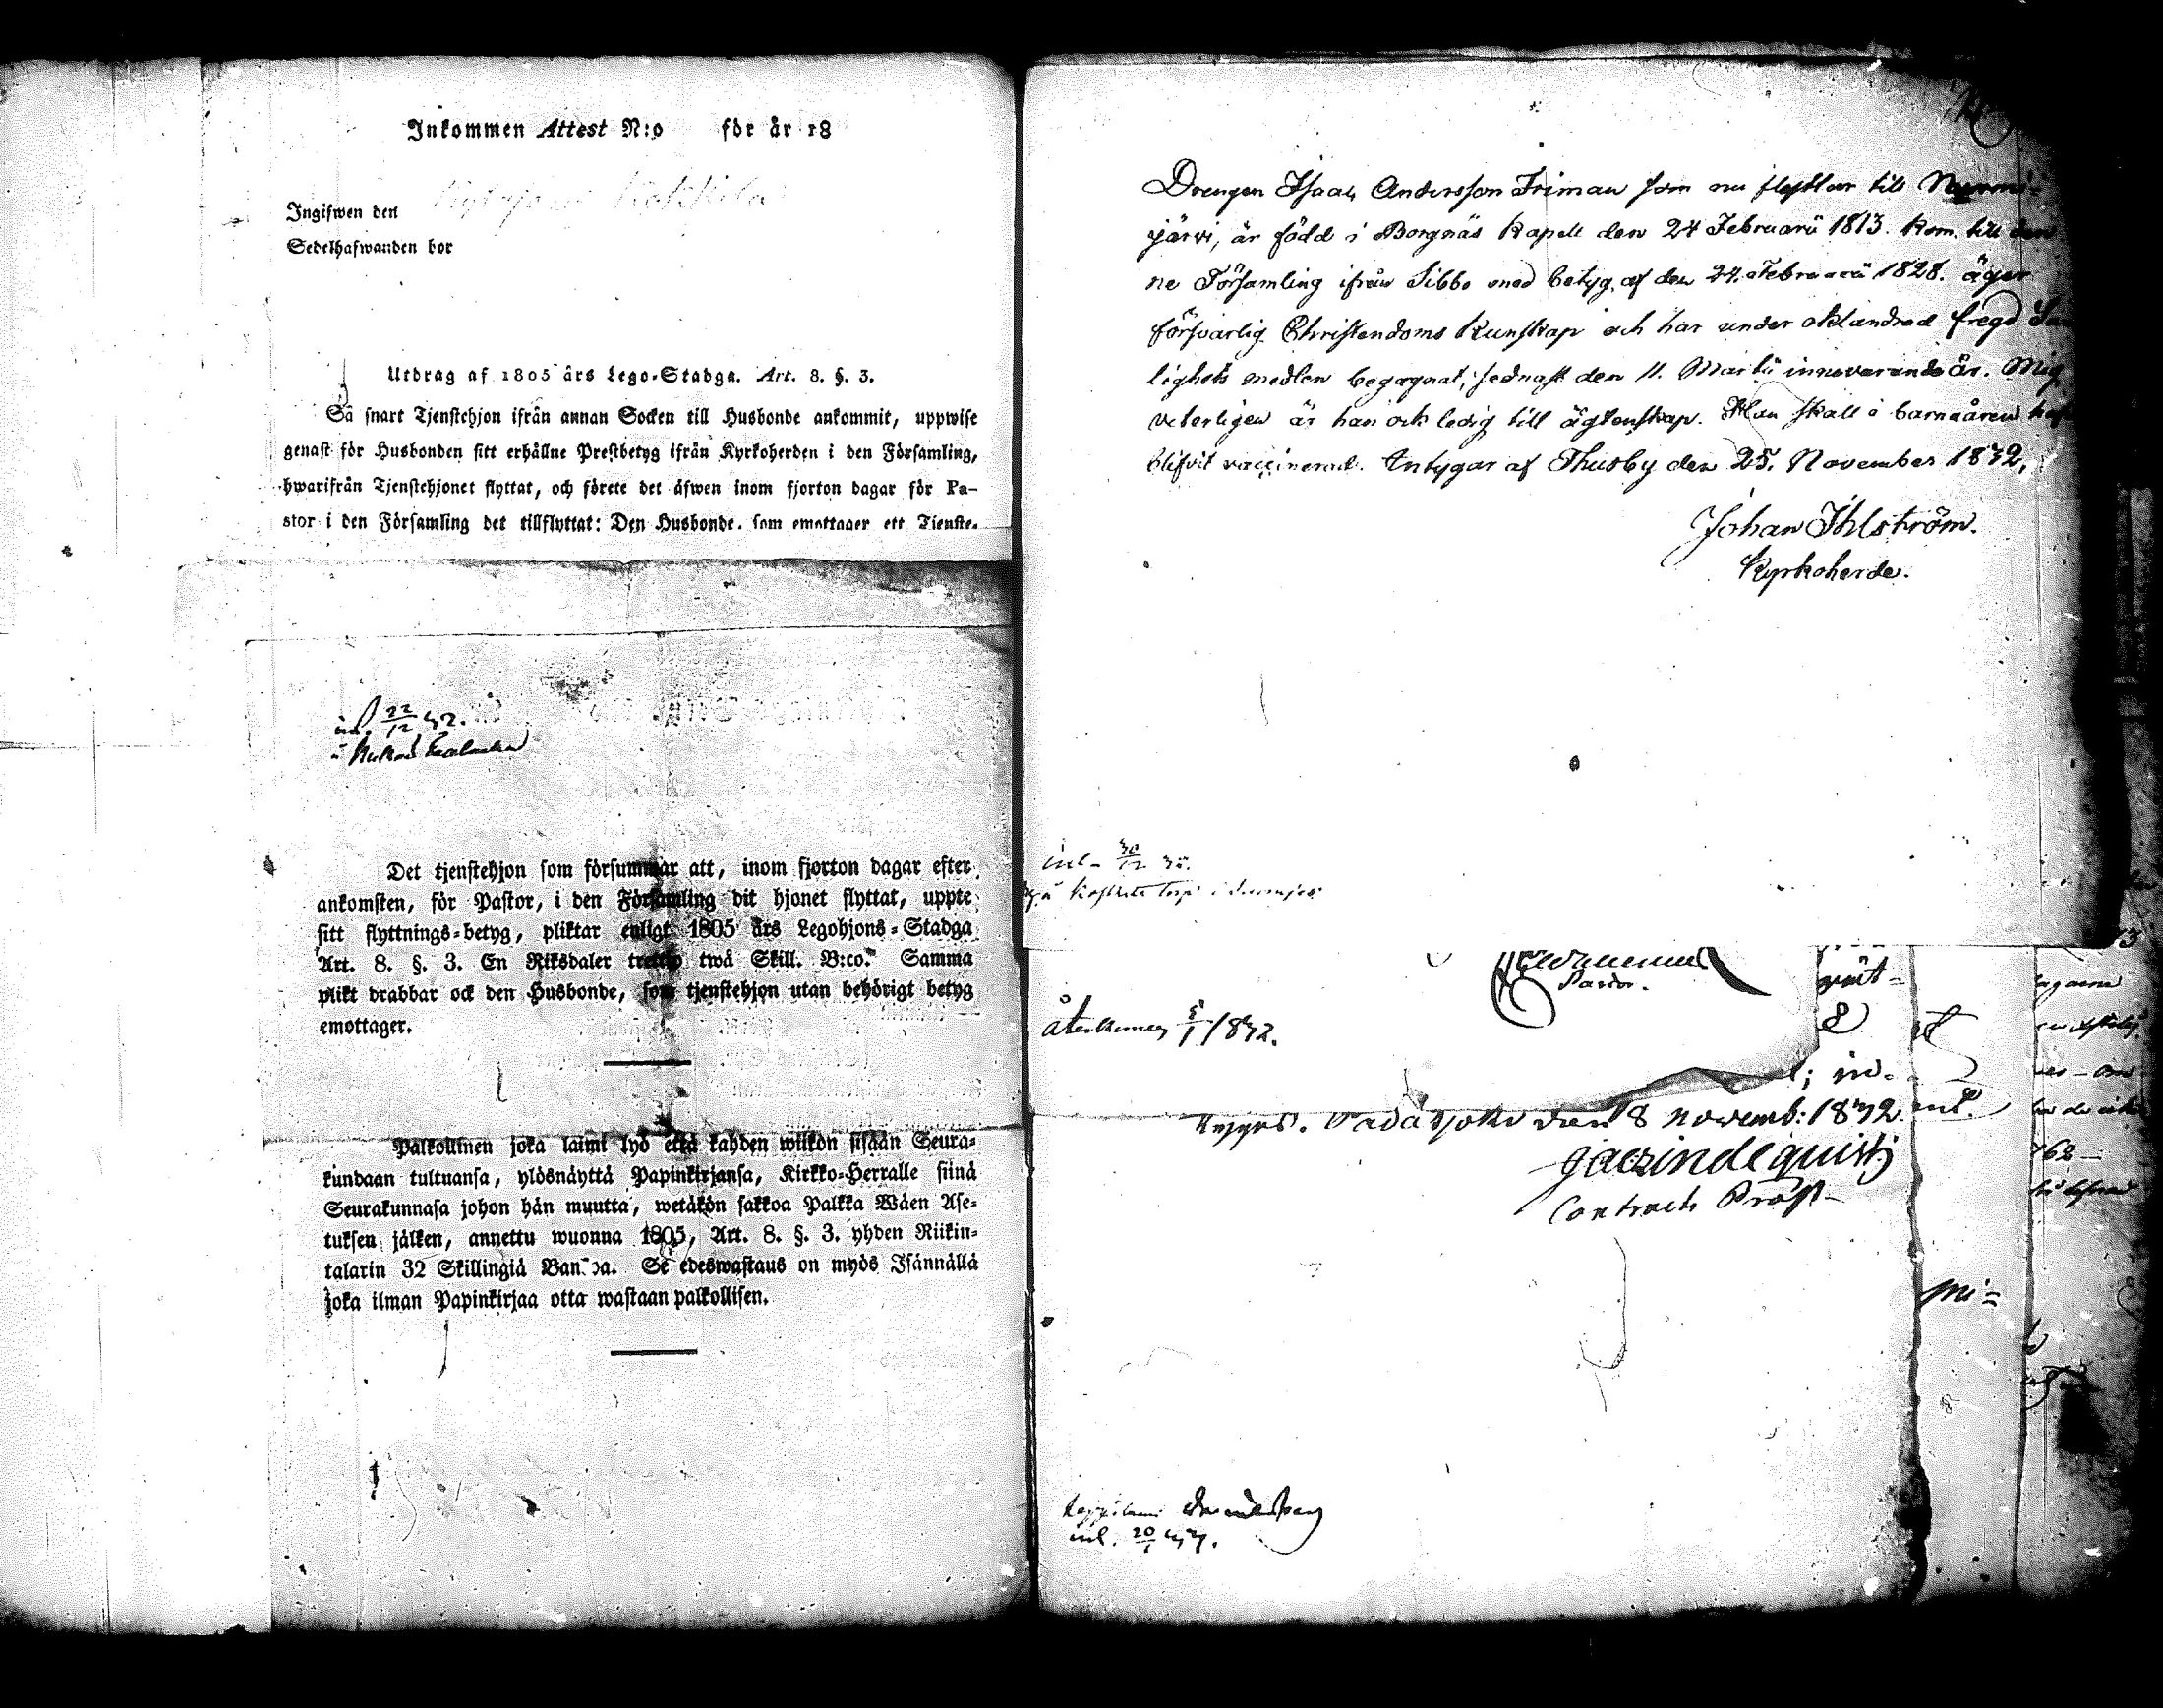 Inkommen Attest N:o för år 18
Ingifwen den
Sedelhafwanden bor
Utdrag af 1805 års Lego-Stadga. Art. 8. §. 3.
Så snart Tjenstehjon ifrån annan Socken till Husbonde ankommit, uppwise
genast för Husbonden sitt erhållne Prestbetyg ifrån Kyrkoherden i den Församling,
hwarifrån Tjenstehjonet flyttat, och förete det äfwen inom fjorton dagar för Pa-
stor i den Församling det tillflyttat: Den Husbonde, som emottager ett Tjenste-
inl. 22/12 42.
Det tjenstehjon som försummar att, inom fjorton dagar efter
ankomsten, för Pastor, i den Församling dit hjonet flyttat, uppte
sitt flyttnings-betyg, pliktar enligt 1805 års Legohjons-Stadga
Art. 8. §. 3. En Riksdaler trettio twå Skill. B:co. Samma
plikt drabbar ock den Husbonde, som tjenstehjon utan behörigt betyg
emottager.
Palkollinen joka laimi lyö että kahden wiikon sisään Seura-
kundaan tultuansa, ylösnäyttä Papinkirjansa, Kirkko-Herralle siinä
Seurakunnasa johon hän muutta, wetäkön sakkoa Palkka Wäen Ase-
tuksen jälken, annettu wuonna 1805, Art. 8. §. 3. yhden Riikin-
talarin 32 Skillingiä Bancoa. Se edeswastaus on myös Isännällä
joka ilman Papinkirjaa otta wastaan palkollisen.
Drengen Isaak Andersson Friman som nu flyttar till Nurmi-
järvi, är född i Borgnäs Kapell den 24 Februarii 1813. Kom till den
ne Församling ifrån Sibbo med betyg af den 24. Februarii 1828. äger
försvarlig Christendoms Kunskap och har under oklandrad fregd Sa
lighets medlen begagnat, sednast den 11. Martii innevarande år. Mig
veterligen är han ock ledig till ägtenskap. Han skall i barnaåren haf
blifvit vaccinerad. Intygar af Thusby den 25. November 1842,
Johan Ihlström.
Kyrkoherde.
inl. 30/12
Pastor.
återkommen 5/1 1842.
den 18 Novemb: 1842.
Contracts Pròst
inl. 20/1 47.